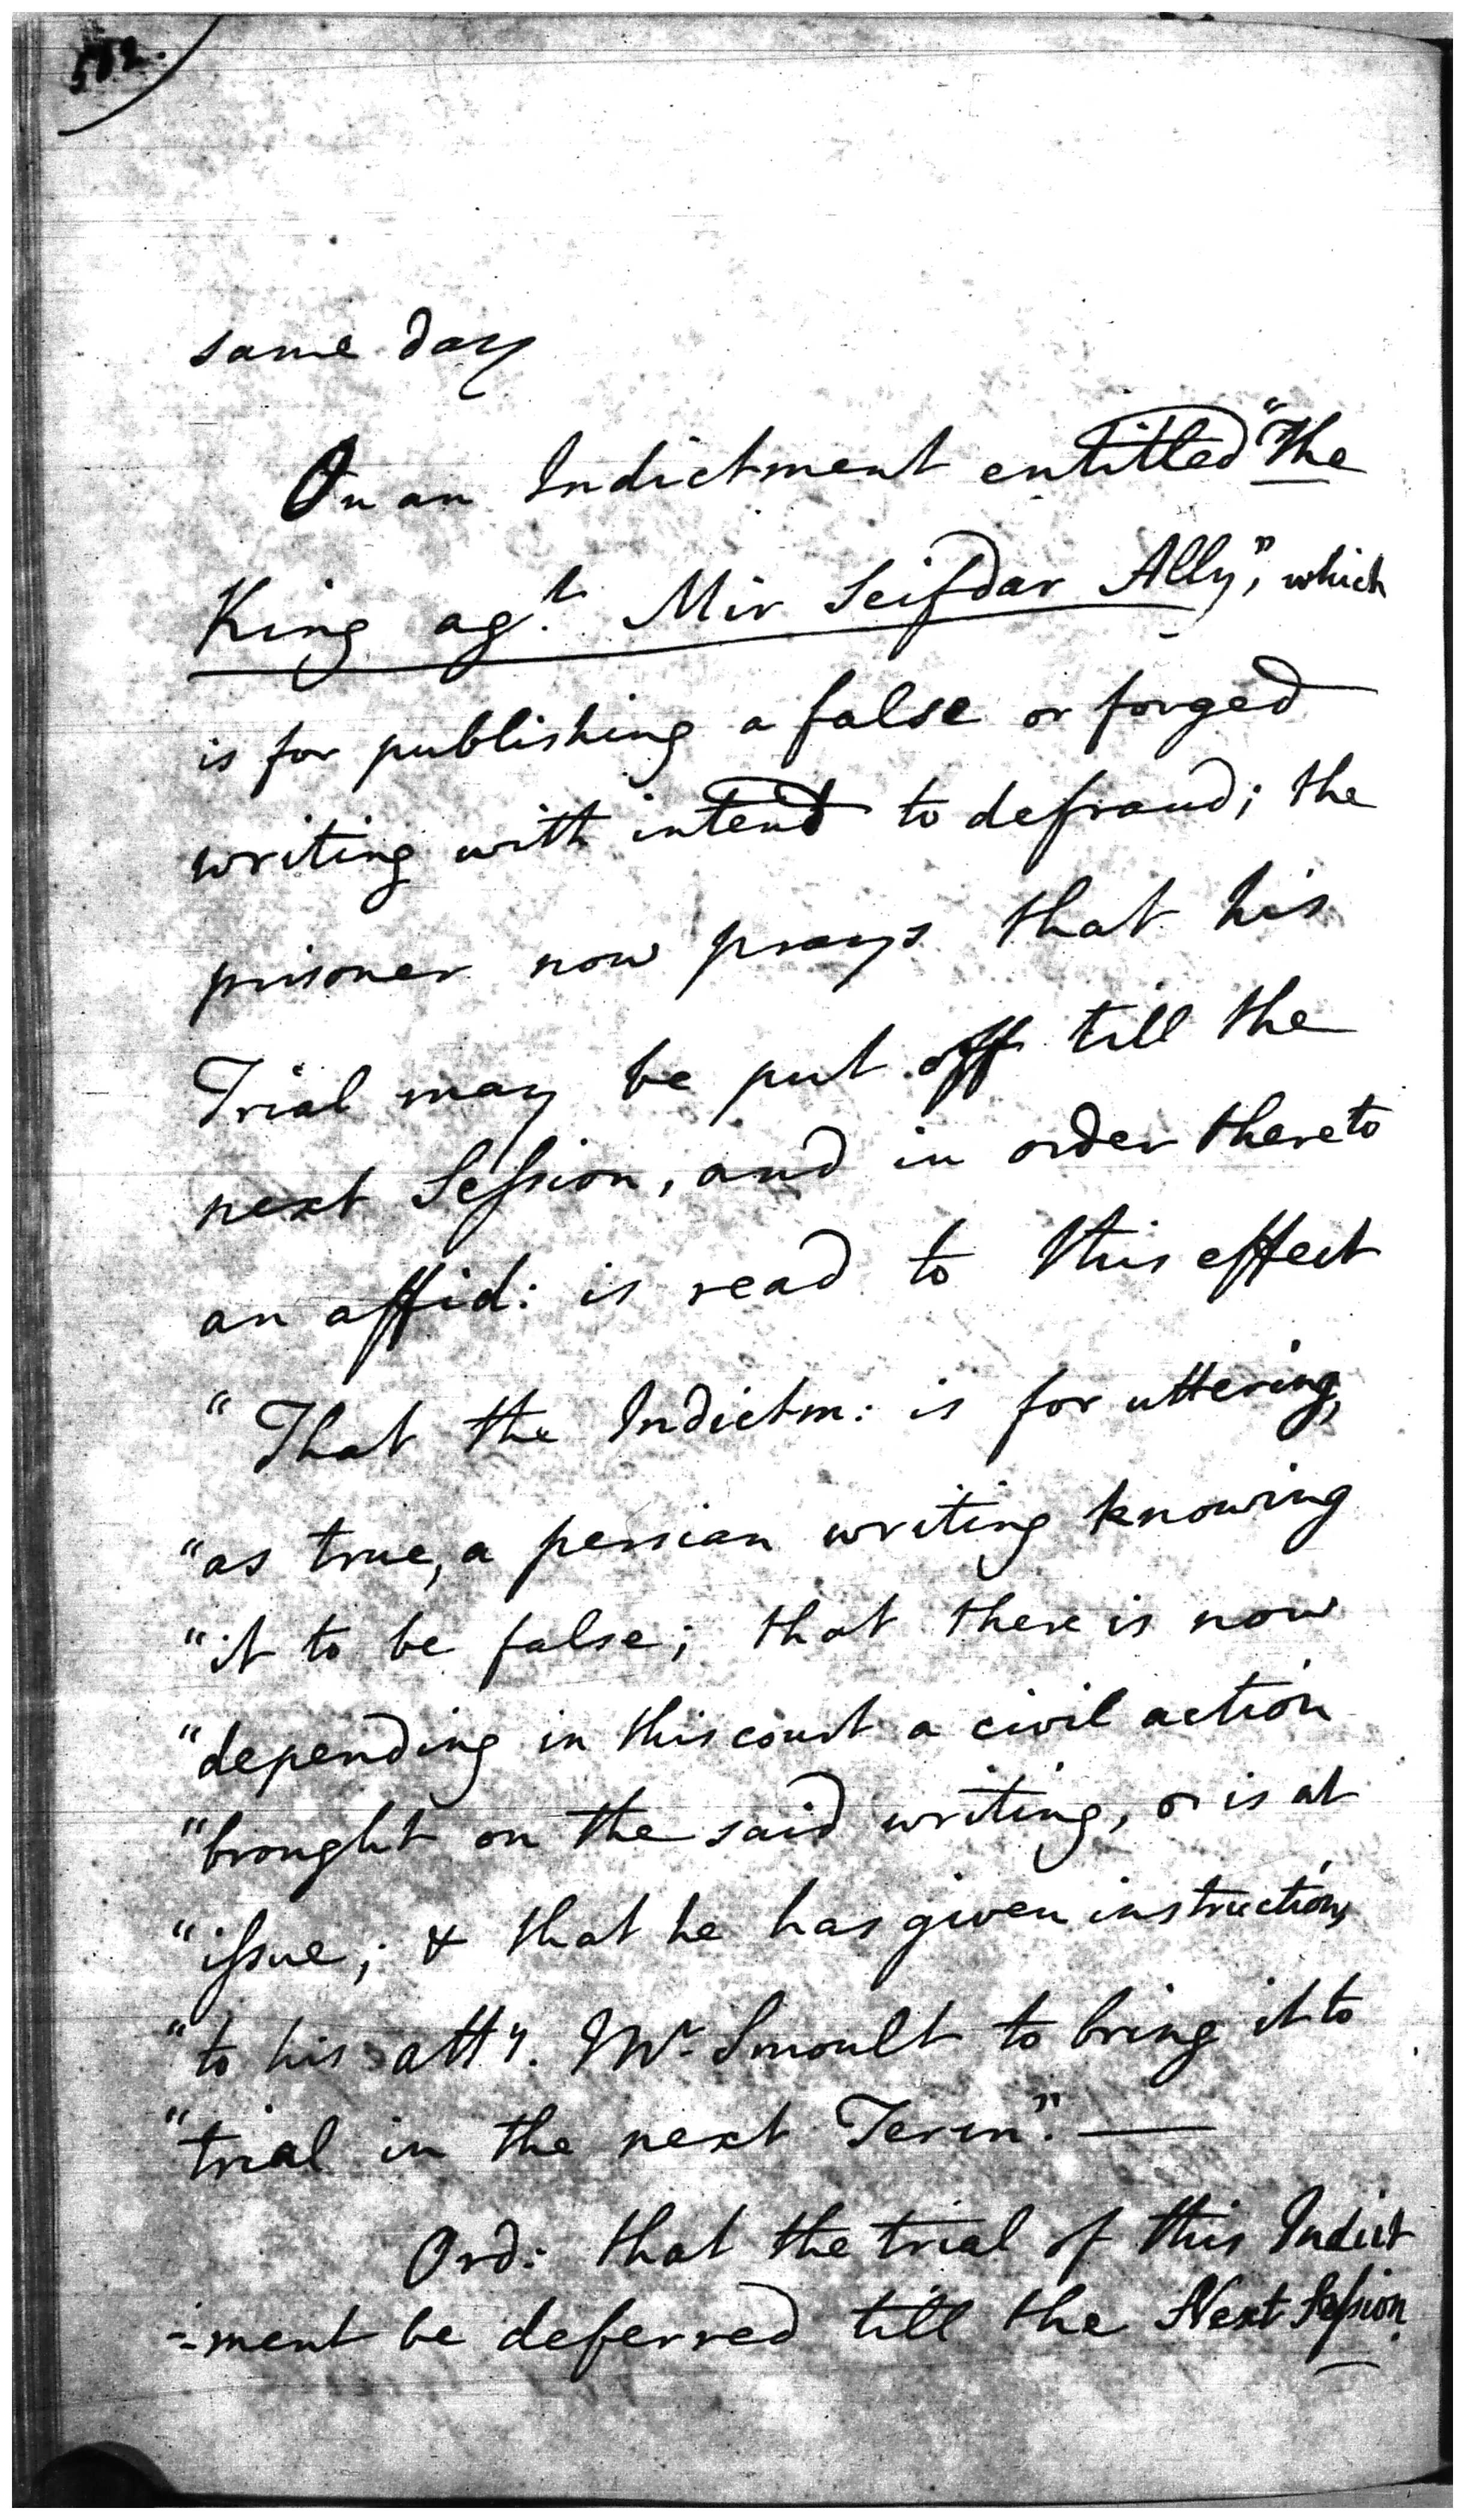 582.
same day
On an Indictment entitled "The
King agt. Mir Seifdar Ally", which
is for publishing a false or forged
writing with intent to defraud; the
prisoner now prays that his
Trial may be put off till the
next Session, and in order thereto
an affid: is read to this effect
"That the Indictm: is for uttering,
"as true, a persian writing knowing
"it to be false; that there is now
"depending in this court a civil action
"brought on the said writing, & is at
"issue; & that he has given instructions
"to his atty. Mr. Smoult to bring it to
"trial in the next Term". —
Ord: that the trial of this Indict
-ment be deferred till the Next Session.